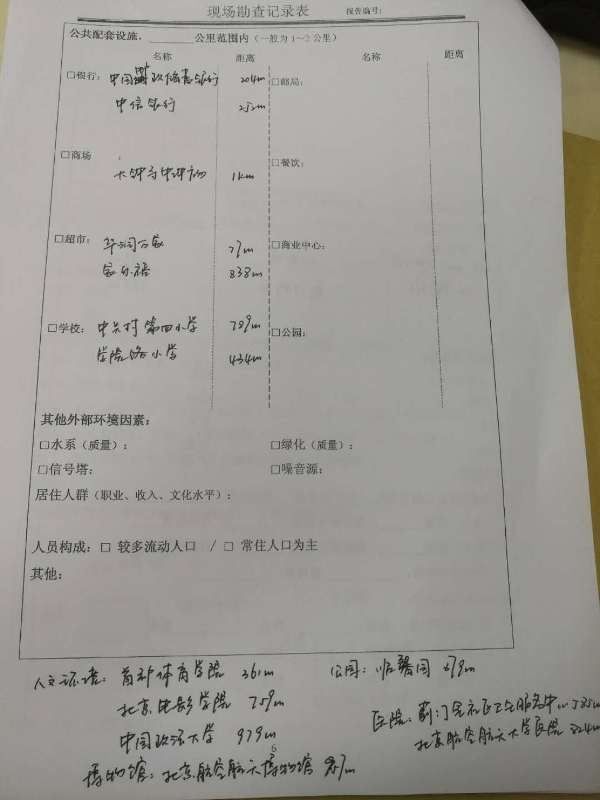 现场勘查记录表 报告编号:
公共配套设施,______公里范围内(一般为1~2公里)
名称 距离 名称 距离
□银行: 中国邮政储蓄银行 204m □邮局:
中信银行 252m
□商场 大钟寺中坤广场 1km □餐饮:
□超市: 华润万家 77m □商业中心:
838m
□学校: 中关村第四小学 789m □公园:
学院路小学 434m
其他外部环境因素:
□水系(质量): □绿化(质量):
□信号塔: □噪音源:
居住人群(职业、收入、文化水平):
人员构成:□ 较多流动人口 / □ 常住人口为主
其他:
人文环境: 首都体育学院 361m 公园: 679m
北京电影学院 759m
医院: 蓟门里社区卫生服务中心 585m
中国政法大学 979m
北京航空航天大学医院 224m
博物馆: 北京航空航天博物馆